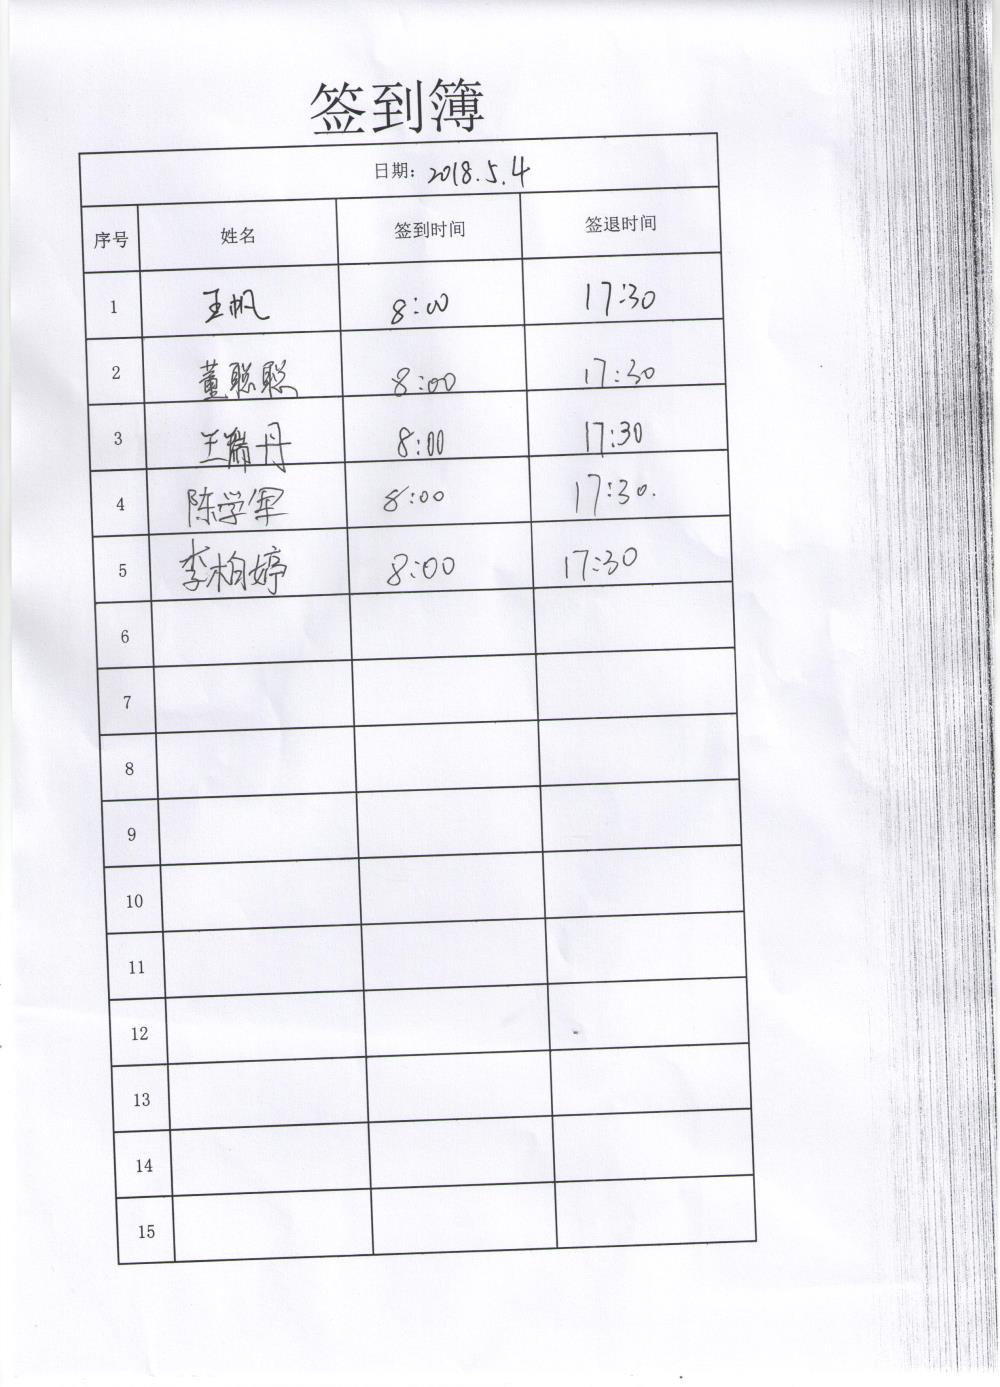 签到簿
日期：2018.5.4
序号 姓名 签到时间 签退时间
1 王帆 8:00 17:30
2 董聪聪 8:00 17:30
3 王瑞丹 8:00 17:30
4 陈学军 8:00 17:30.
5 李柏婷 8:00 17:30
6
7
8
9
10
11
12
13
14
15